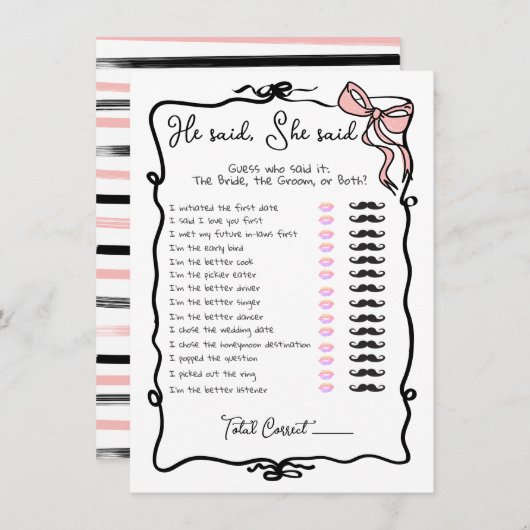 He said, She said
Guess who said it:
The Bride, the Groom, or Both?
I initiated the first date
I said I love you first
I met my future in-laws first
I'm the early bird
I'm the better cook
I'm the pickier eater
I'm the better driver
I'm the better singer
I'm the better dancer
I chose the wedding date
I chose the honeymoon destination
I popped the question
I picked out the ring
I'm the better listener
Total Correct _____